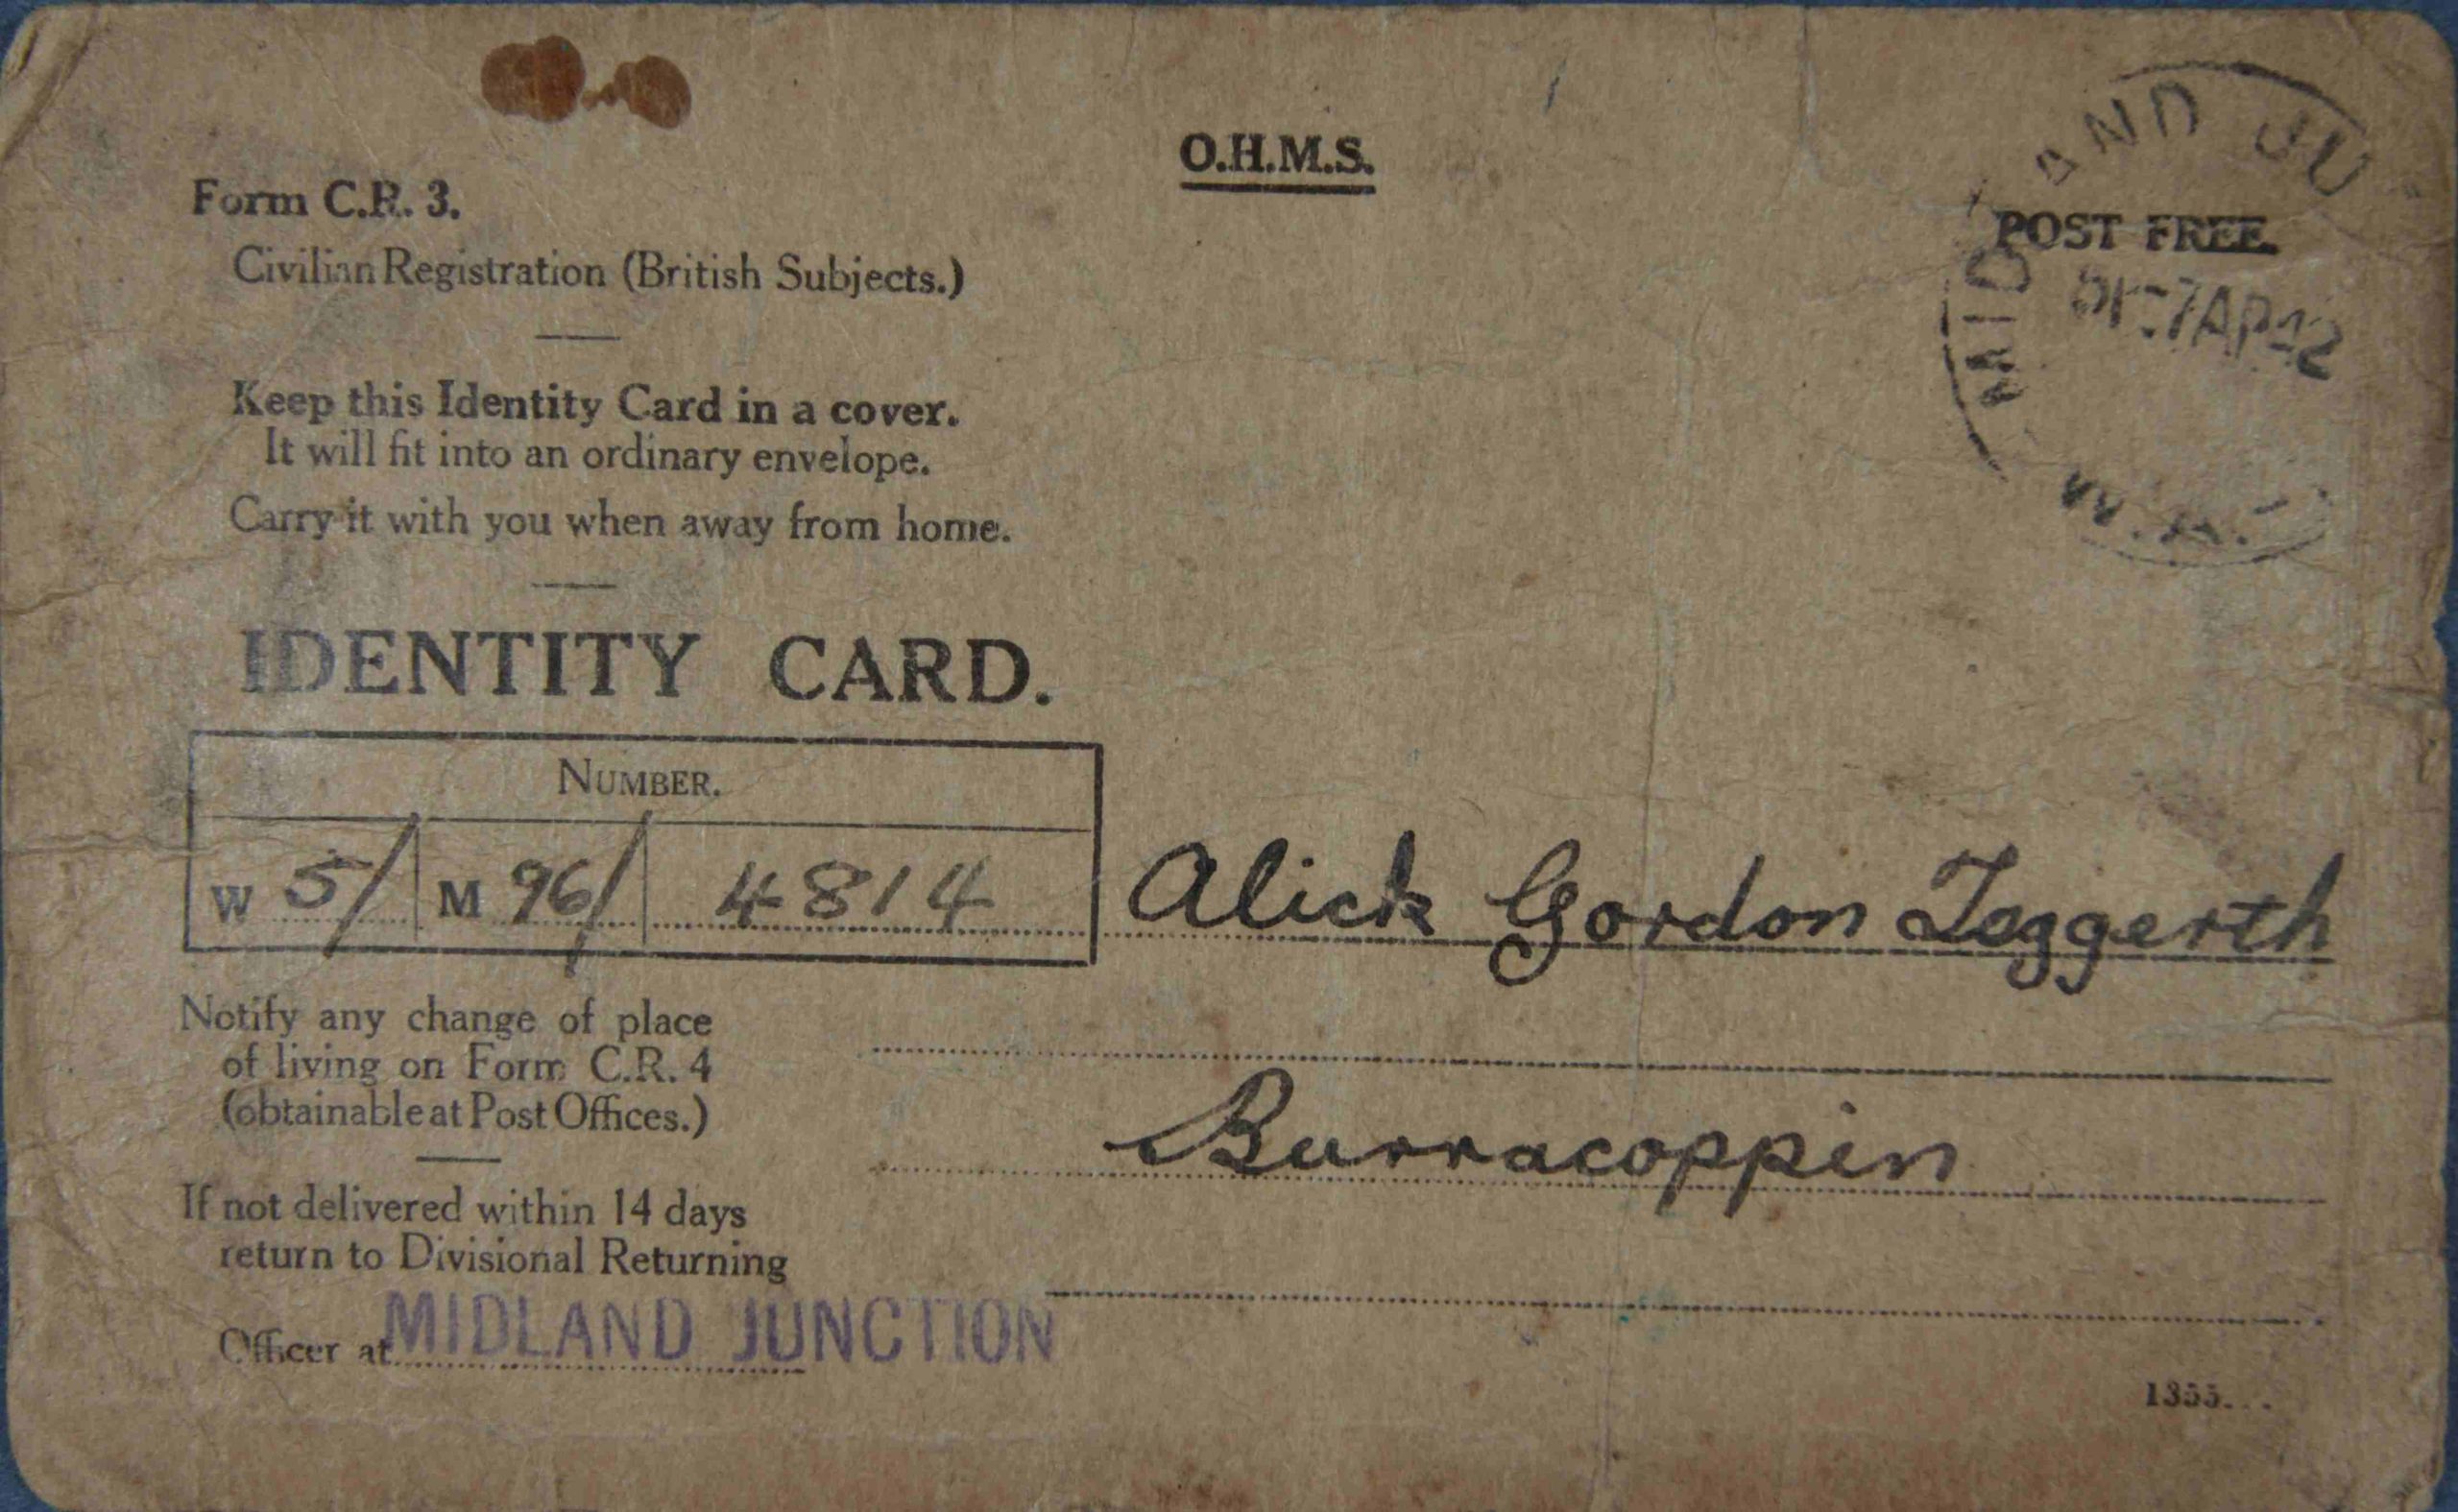 O.H.M.S.
Form C.R. 3.
Civilian Registration (British Subjects.)
POST FREE.
MIDLAND JU
7 AP 42
W.A.
Keep this Identity Card in a cover.
It will fit into an ordinary envelope.
Carry it with you when away from home.
IDENTITY CARD.
NUMBER.
W 5/ M 96/ 4814
Alick Gordon Teggerth
Notify any change of place
of living on Form C.R. 4
(obtainable at Post Offices.)
Burracoppin
If not delivered within 14 days
return to Divisional Returning
Officer at MIDLAND JUNCTION
1355